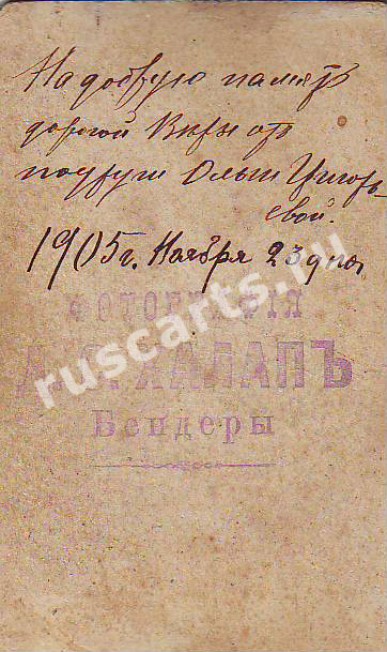 На добрую память
дорогой Веры отъ
подруги Ольги Григорь-
евой.
1905 г. Ноября 23 дня.
ФОТОГРАФІЯ
ХАЛАПЪ
Бендеры
ruscarts.ru